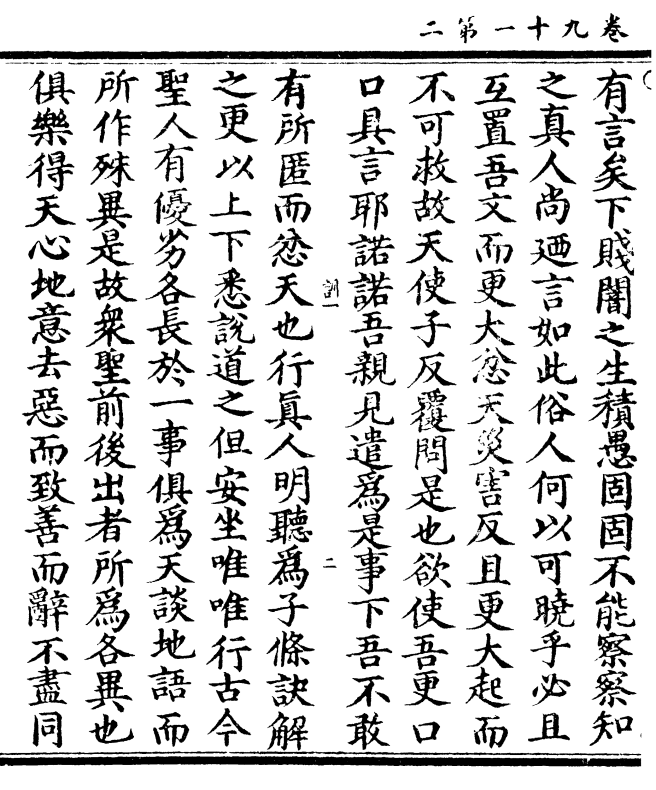 卷九十一第二
有言矣下賤闇之生積愚固固不能察察知
之真人尚廼言如此俗人何以可曉乎必且
互置吾文而更大忿天災害反且更大起而
不可救故天使子反覆問是也欲使吾更口
口具言耶諾諾吾親見遣爲是事下吾不敢
訓一 二
有所匿而忿天也行眞人明聽爲子條訣解
之更以上下悉說道之但安坐唯唯行古今
聖人有優劣各長於一事俱爲天談地語而
所作殊異是故衆聖前後出者所爲各異也
俱樂得天心地意去惡而致善而辭不盡同